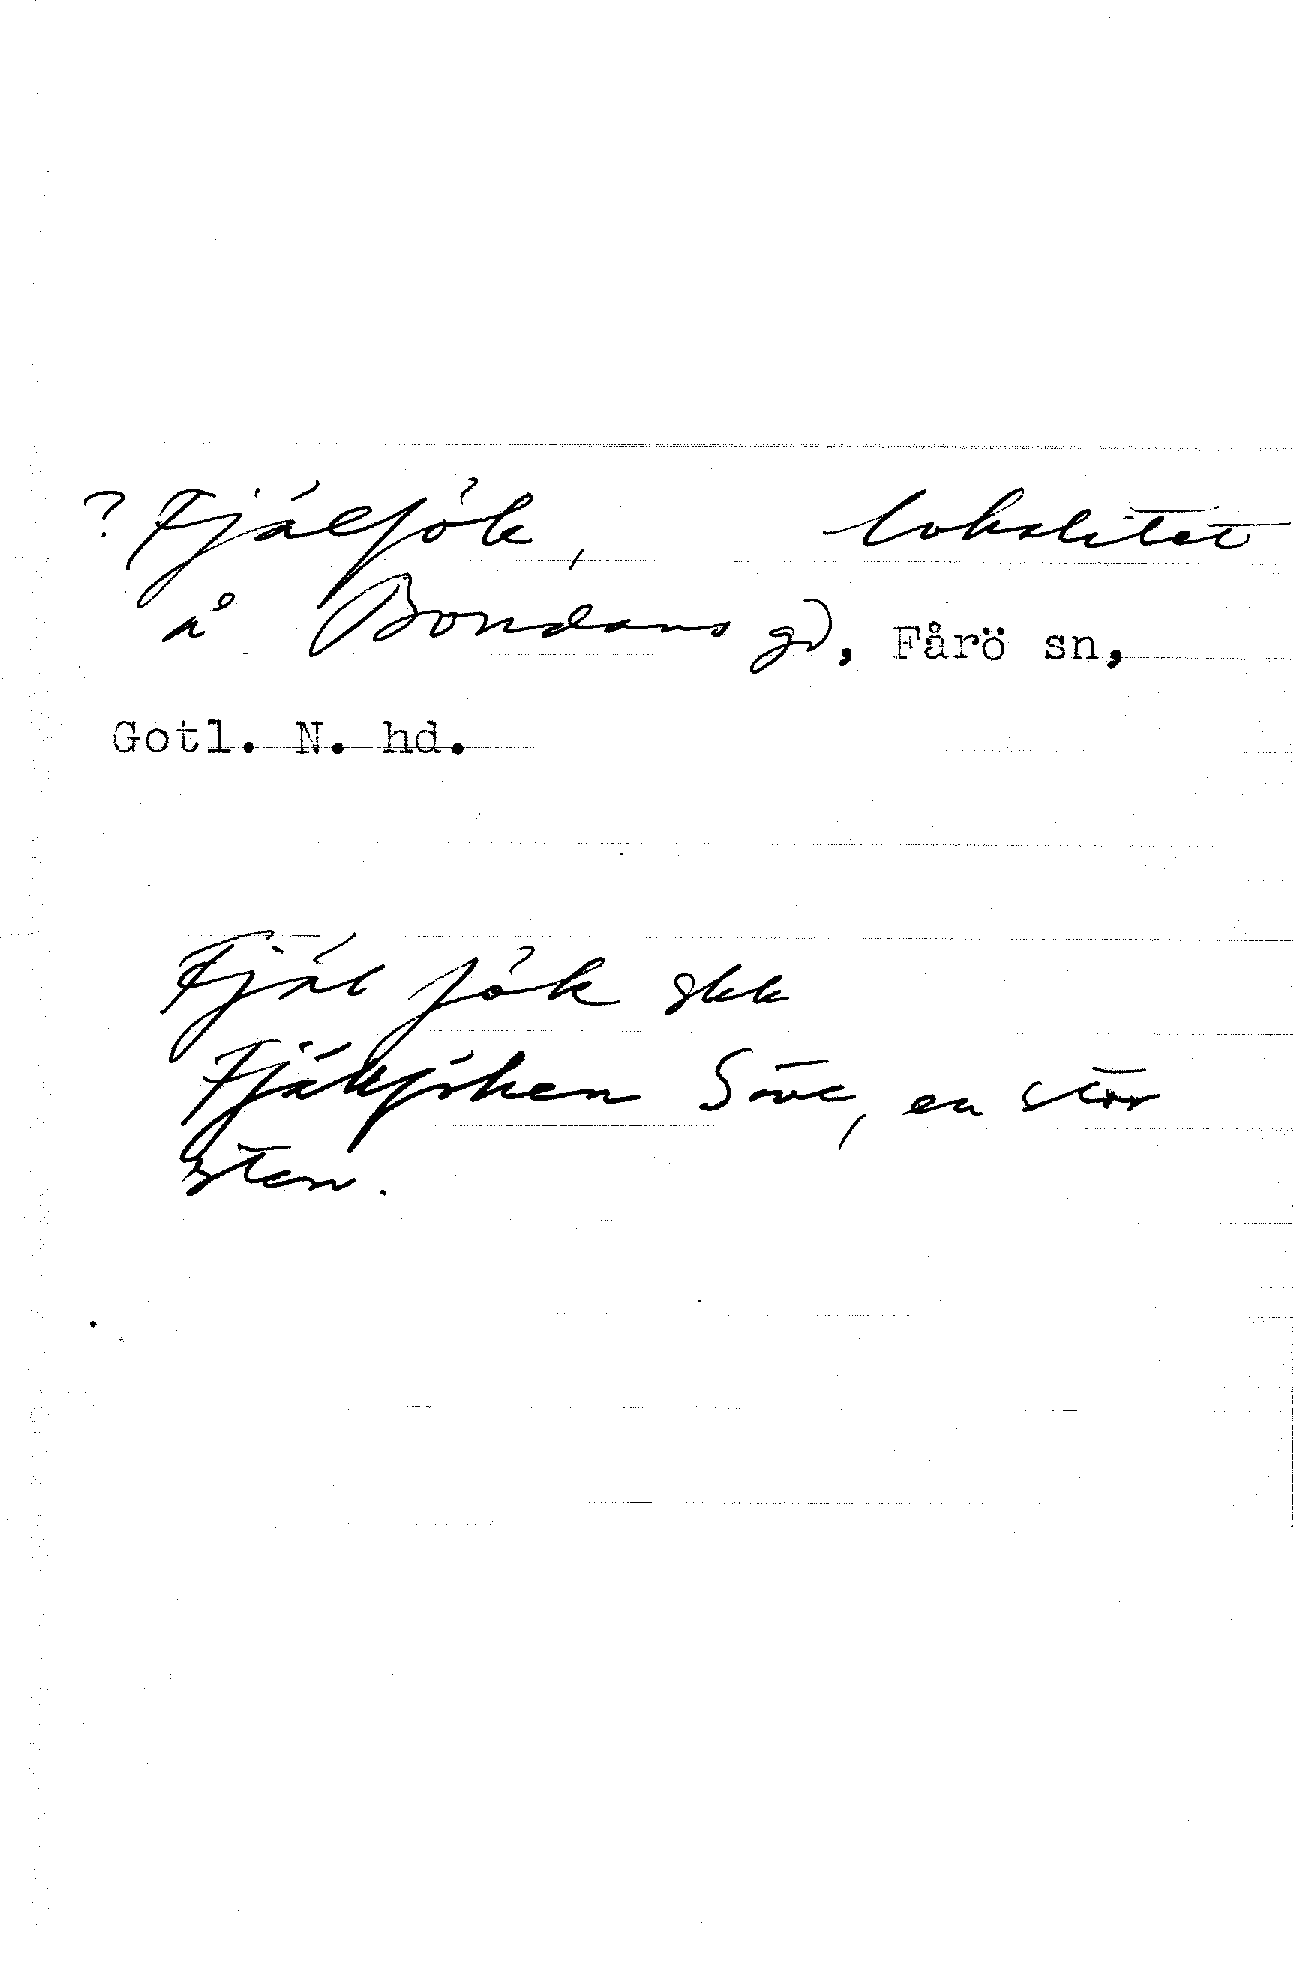 ? Fjäljók, lokalitet
å Bondans gd, Fårö sn,
Gotl. N. hd.
Fjäl jók gkk
Fjäljóken Säve, en stor
sten.